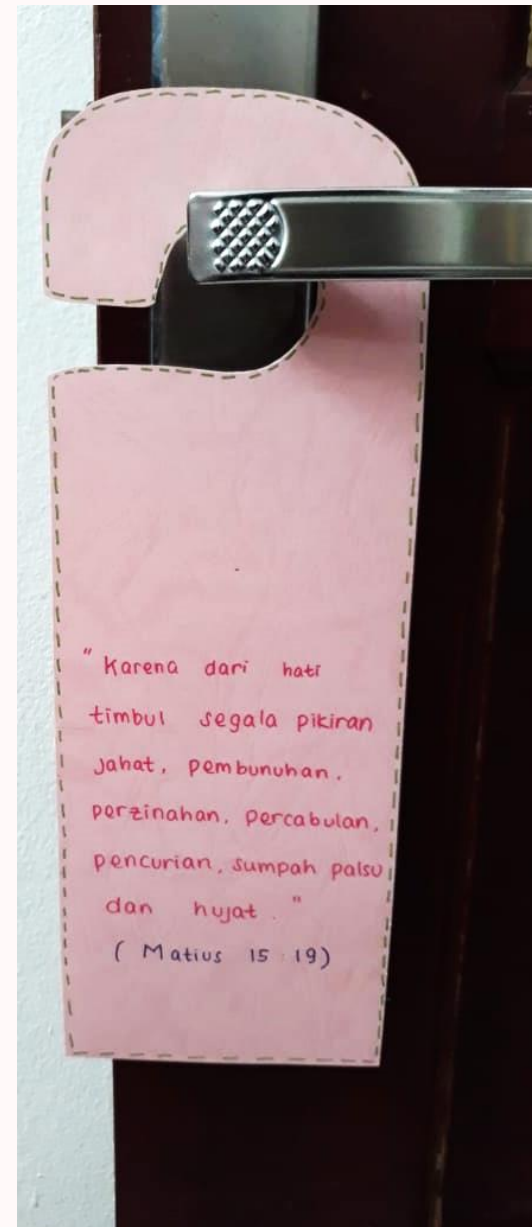 "Karena dari hati
timbul segala pikiran
jahat, pembunuhan,
perzinahan, percabulan,
pencurian, sumpah palsu
dan hujat."
(Matius 15:19)